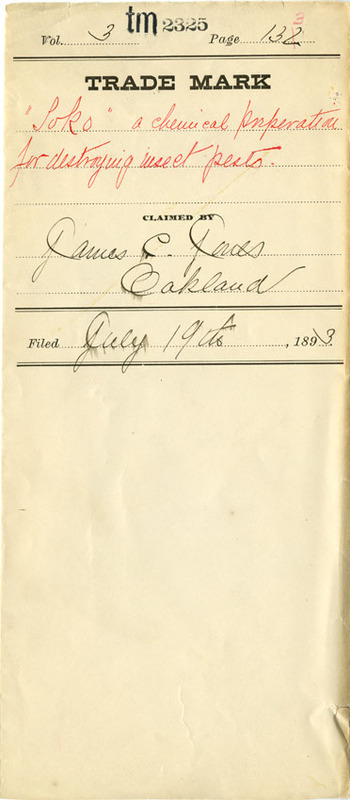 tm 2325
Vol. 3 Page 132 3
TRADE MARK
"Soko" a chemical preperation
for destroying insect pests.
CLAIMED BY
James E.
Oakland
Filed July 19th, 1893